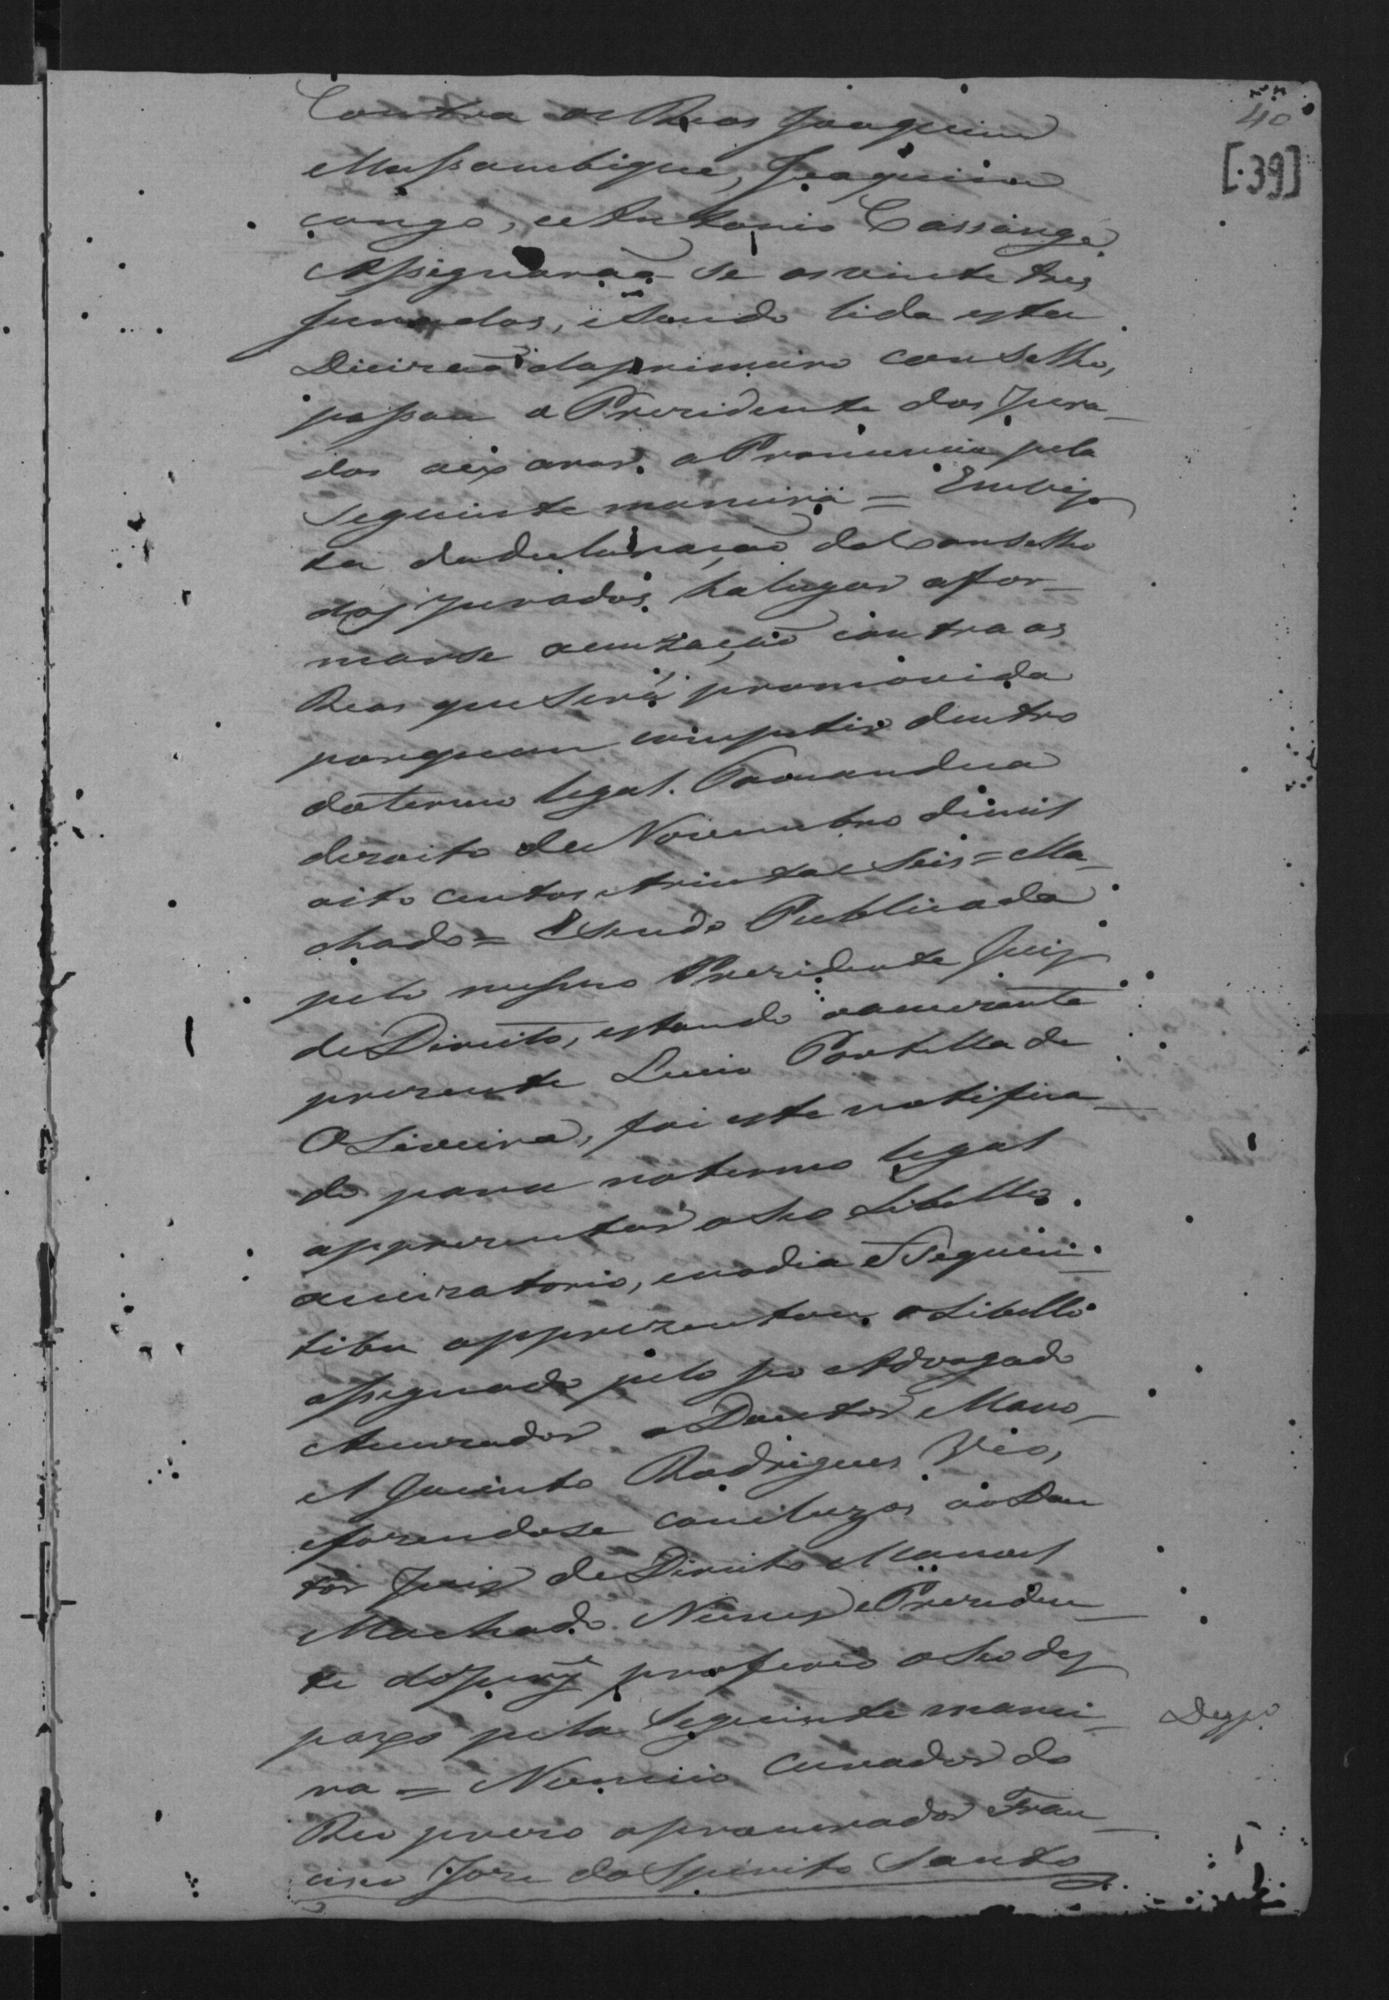 40
[.39]
Contra os Reos Joaquim
Mossambique, Joaquim
congo, e Antonio Cassange
Assignarão se os vinte tres
Jurados, e Sendo lida esta
Dicizão do primeiro conselho,
passou o Prezidente dos Jura-
dos a exarar a Pronuncia pela
Seguinte maneira = Em vis-
ta da declaração do Conselho
dos Jurados ha lugar a for-
marse acuzação contra os
Reos que Será promovida
por quem competir dentro
do termo legal. Paranandua
dezoito de Novembro de mil
oito centos e trinta e Seis = Ma-
chado = E Sendo Publicada
pelo mesmo Prezidente Juiz
de Direito, estando o accuzante
prezente Lucio Portella de
Oliveira, foi este notifica-
do para no termo legal
apprezentar o Seo Libello
acuzatorio, e no dia E Seguin-
tibu apprezentou o Libello
assignado pelo seo Advogado
e Acuzador o Doutor Mano-
el Jacinto Rodrigues Veo,
e fazendose concluzos ao Dou
tor Juiz de Direito Manoel
Machado Nunes e Preziden-
te do Jury proferio o Seo des
paxo pela Seguinte manei-
ra = Nomeio curador do
Reo prezo o procurador Fran-
cisco Joze do Spirito Santo
Desp.º